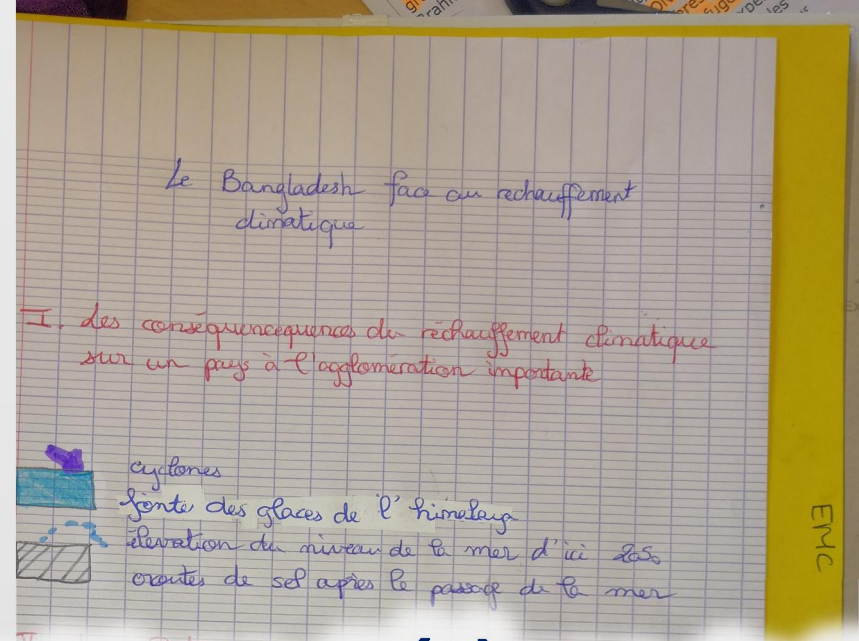 Le Bangladesh face au rechauffement
climatique
I. Les conséquencequences du réchauffement climatique
sur un pays à l'agglomération importante
cyclones
fonte des glaces de l'himalaya
élevation du niveau de la mer d'ici 2050
croutes de sel après le passage de la mer
EMC